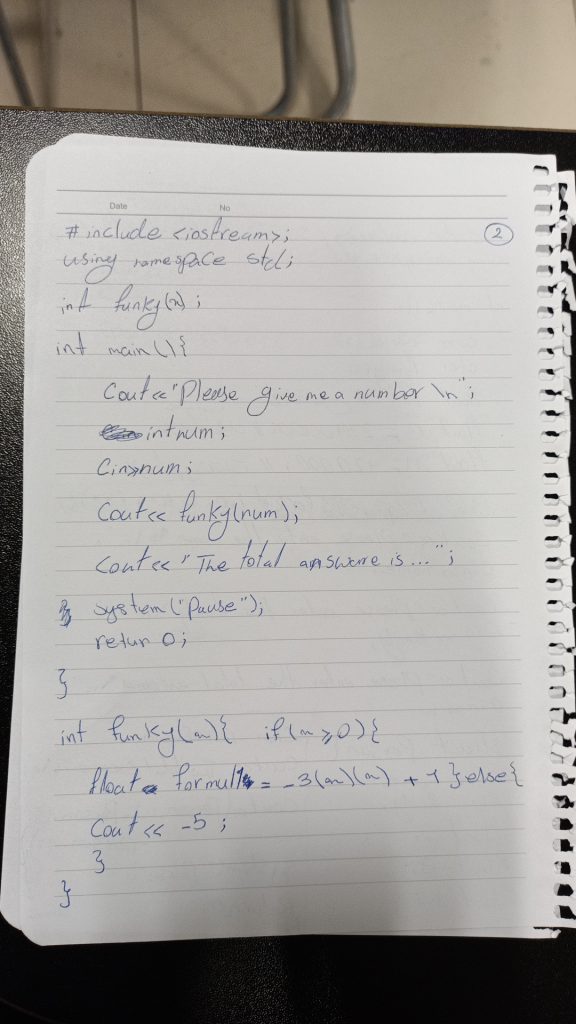 Date No
# include <iostream>; 2
using namespace std;
int funky(n);
int main(){
Cout<<"Please give me a number \n";
int num;
Cin>>num;
Cout<< funky(num);
Cout<< "The total answere is...";
system("Pause");
retur 0;
}
int funky(n){ if(n≥0){
float formul = -3(n)(n) + 1 }else{
Cout << -5 ;
}
}